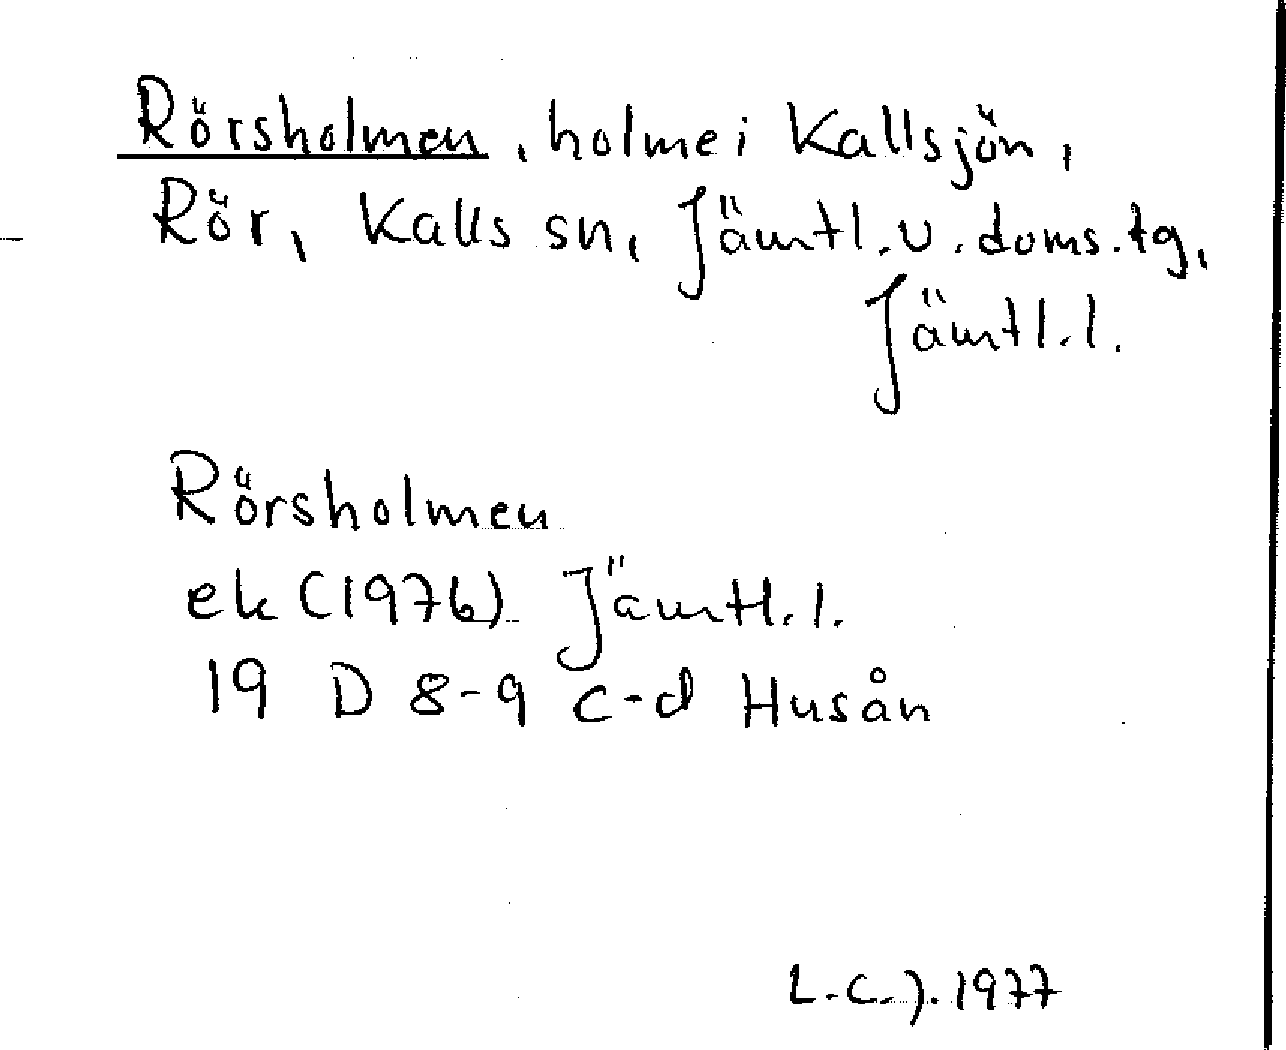 Rörsholmen, holme i Kallsjön,
Rör, Kalls sn, Jämtl.v.doms.tg,
Jämtl.l.
Rörsholmen
ek (1976) Jämtl.l.
19 D 8-9 c-d Husån
L.C.J. 1977